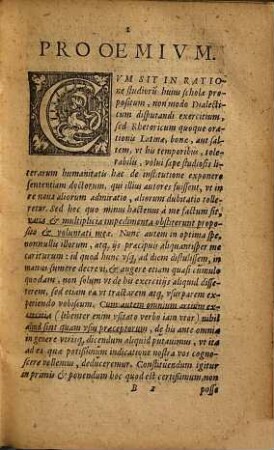 1
PROOEMIVM.
CVM SIT IN RATIO
ne studiorũ huius scholæ pro
positum, non modo Dialecti
cum disputandi exercitium,
sed Rhetoricum quoque ora
tionis Latinæ, bonæ, aut sal
tem, vt his temporibus, tole
rabilis, volui sæpe studiosis li
terarum humanitatis hac de institutione exponere
sententiam doctorum, qui illius autores fuissent, vt in
re noua aliorum admiratio, aliorum dubitatio tolle
retur. Sed hoc quo minus hactenus à me factum sit,
varia & multiplicia impedimenta obstiterunt propo
sito & voluntati meæ. Nunc autem in optima spe,
nonnullis illorum, atq; ijs præcipuis aliquantisper me
cariturum: id quod hunc vsq; ad diem distulissem, in
manus sumere decreui, & augere etiam quasi cumulo
quodam, non solum vt de his exercitijs aliquid disse
rerem, sed etiam ea vt tractarem atq; vsurparem ex
periendo vobiscum. Cum autem omnium artium ex
(libenter enim vsitato verbo iam vtar) nihil
aliud sint quam vsus præceptorum, de his ante omnia
in genere vtriq; dicendum aliquid putauimus, vt ita
ad ea quæ potissimum indicatione nostra vos cogno
scere vellemus, deduceremur. Constituendum igitur
in primis & ponendum hoc quod est certissimum, non
B 2 posse